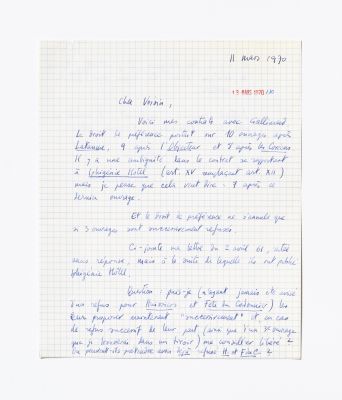 11 mars 1970
13 MARS 1970
Cher Voisin,
Voici mes contrats avec Gallimard
Le droit de préférence portait sur 10 ouvrages après
9 après l'Objecteur et 8 après les Coréens
Il y a une ambiguïté dans le contrat se rapportant
à Iphigénie Hôtel (art. XV remplaçant art. XII)
mais je pense que cela veut dire : 7 après ce
dernier ouvrage.
Et le droit de préférence ne s'annule que
si 3 ouvrages sont successivement refusés.
Ci-jointe ma lettre du 2 avril 61, restée
sans réponse, mais à la suite de laquelle ils ont publié
Iphigénie Hôtel.
Question : puis-je (n'ayant jamais été avisé
d'un refus pour Huissiers et Fête du Cordonnier) les
leur proposer maintenant "successivement" et en cas
de refus successif de leur part (ainsi que d'un 3e ouvrage
que je trouverais dans un tiroir) me considérer libéré ?
Ou peuvent-ils prétendre avoir déjà refusé H et FduC ?